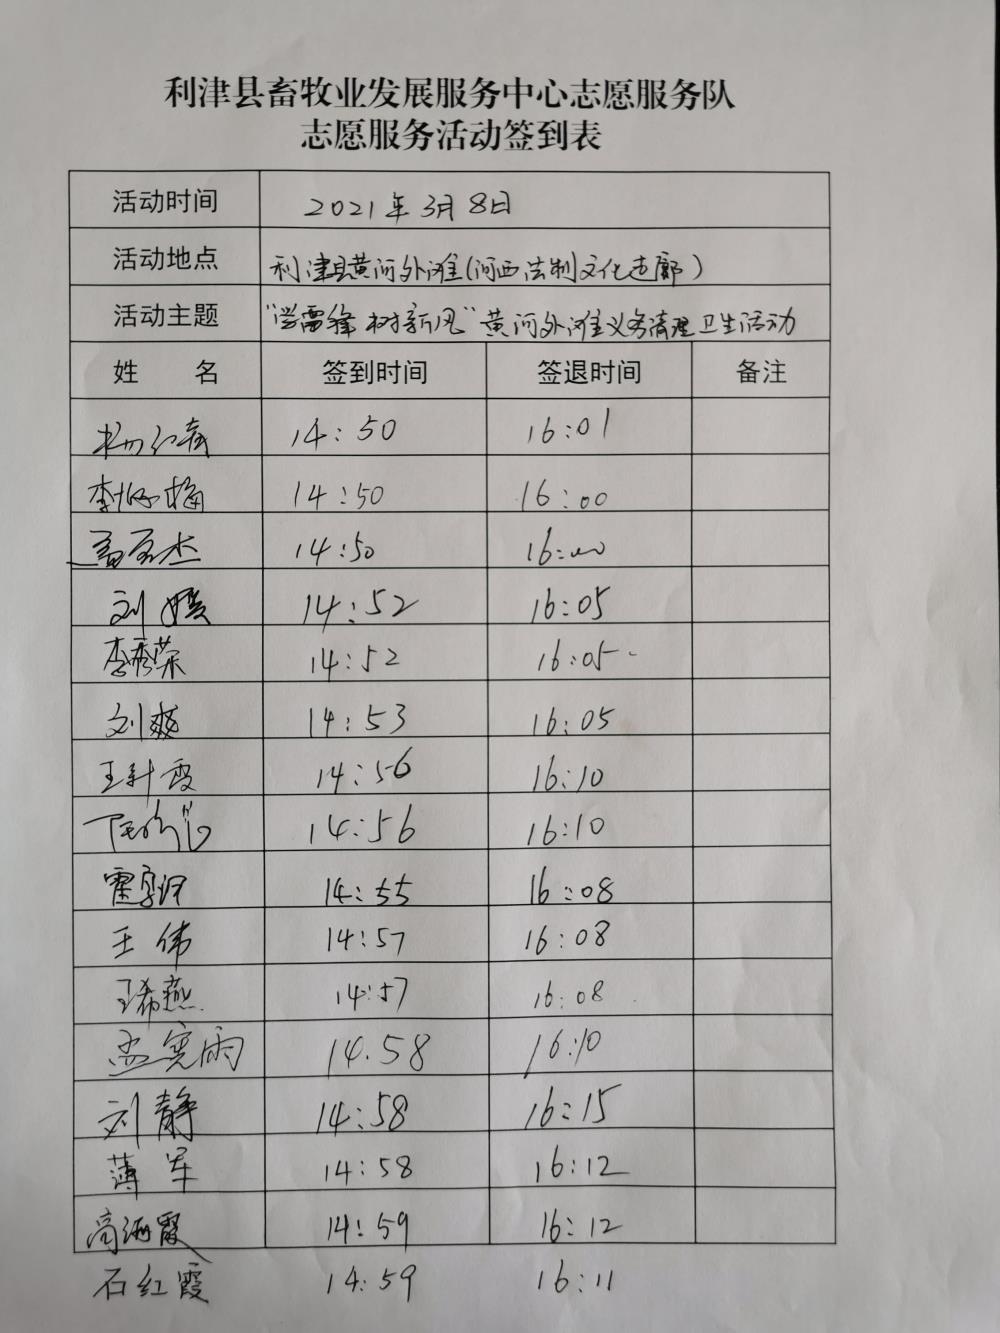 利津县畜牧业发展服务中心志愿服务队
志愿服务活动签到表
活动时间 2021年3月8日
活动地点 利津县黄河外滩(河西法制文化走廊)
活动主题 "学雷锋 树新风"黄河外滩义务清理卫生活动
姓 名 签到时间 签退时间 备注
14:50 16:01
李 梅 14:50 16:00
14:50 16:00
刘媛 14:52 16:05
李秀荣 14:52 16:05
刘爽 14:53 16:05
王 霞 14:56 16:10
14:56 16:10
霍 14:55 16:08
王伟 14:57 16:08
王希燕 14:57 16:08
孟宪雨 14.58 16:10
刘静 14:58 16:15
薄军 14:58 16:12
高洒霞 14:59 16:12
石红霞 14:59 16:11